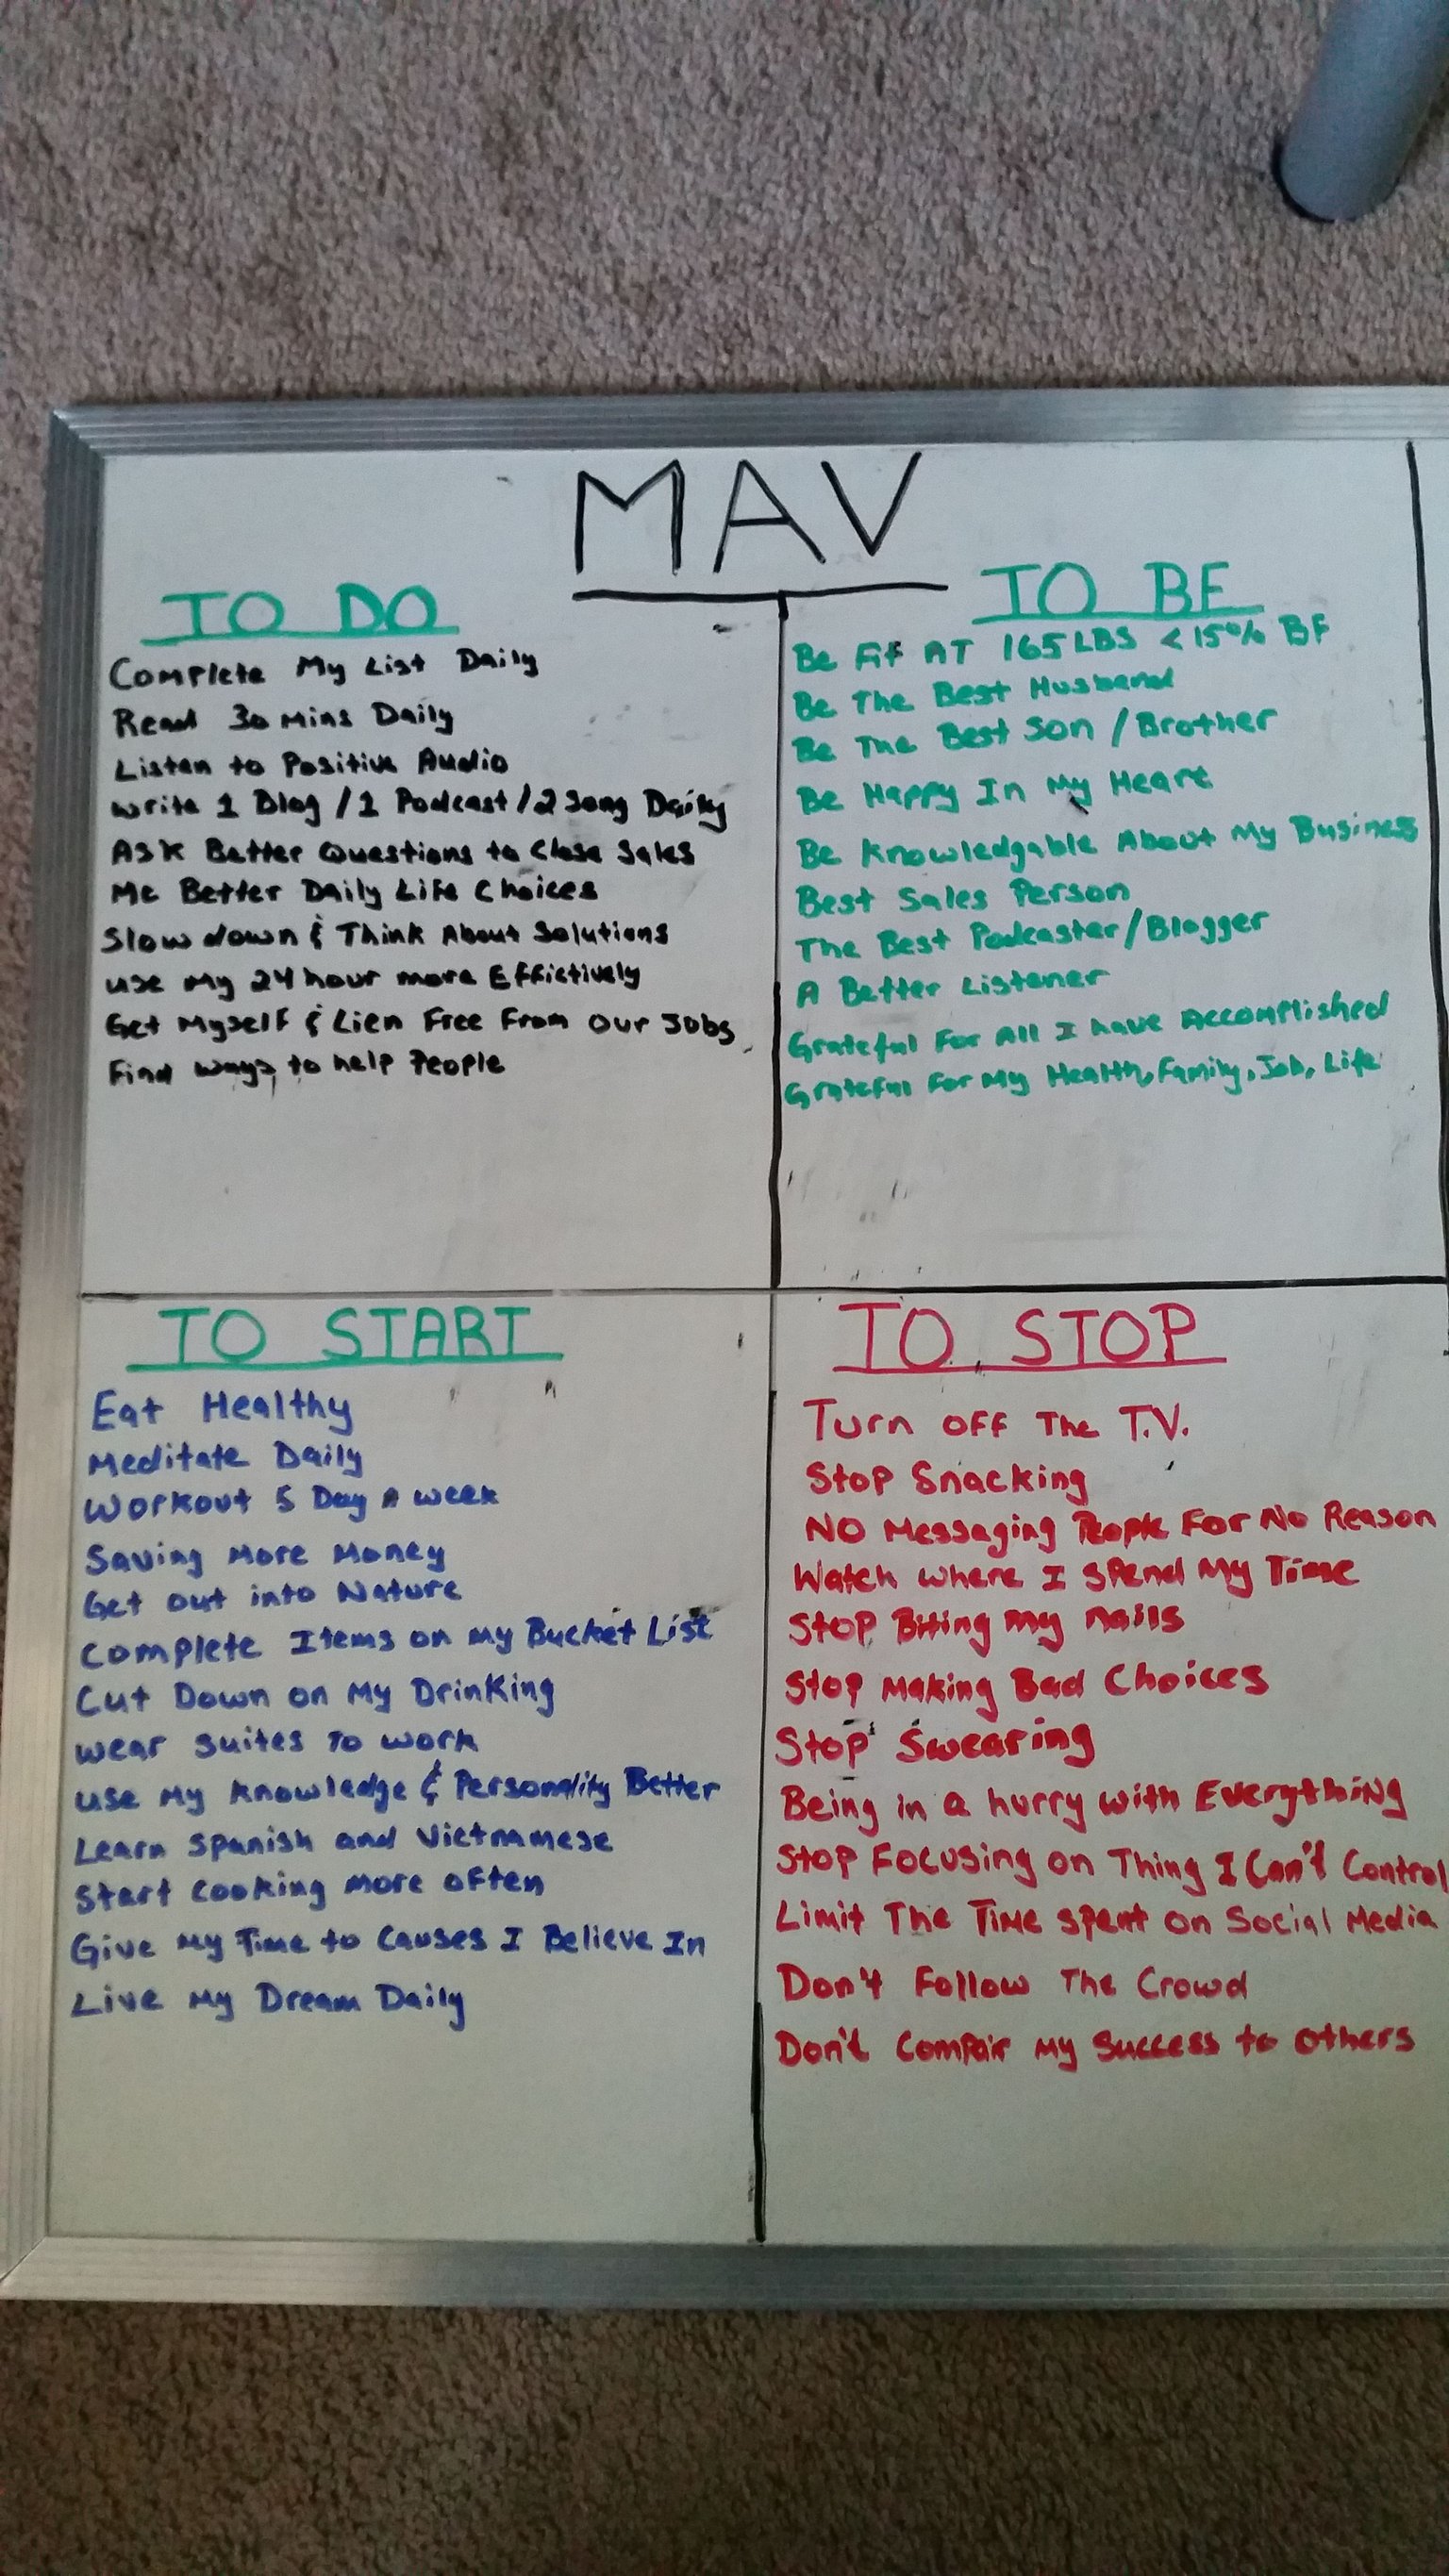 MAV
TO DO
Complete My List Daily
Read 30 Mins Daily
Listen to Positive Audio
Write 1 Blog / 1 Podcast / 2 Song Daily
Ask Better Questions to Close Sales
Me Better Daily Life Choices
Slow down & Think About Solutions
use My 24 hour more Effictively
Get Myself & Lien Free From Our Jobs
Find ways to help People
TO BE
Be Fit AT 165 LBS < 15% BF
Be The Best Husband
Be The Best Son / Brother
Be Happy In My Heart
Be Knowledgable About My Business
Best Sales Person
The Best Podcaster/Blogger
A Better Listener
Grateful For All I have Accomplished
Grateful For My Health, Family, Job, Life
TO START
Eat Healthy
Meditate Daily
Workout 5 Day A week
Saving More Money
Get out into Nature
Complete Items on My Bucket List
Cut Down on My Drinking
wear suites To work
use My Knowledge & Personality Better
Learn Spanish and Vietnamese
Start cooking more often
Give My Time to Causes I Believe In
Live My Dream Daily
TO STOP
Turn off The T.V.
Stop Snacking
NO Messaging People For No Reason
Watch where I spend My Time
Stop Biting my nails
Stop Making Bad Choices
Stop Swearing
Being in a hurry with Everything
Stop Focusing on Thing I Can't Control
Limit The Time spent on Social Media
Don't Follow The Crowd
Don't Compair My Success to others